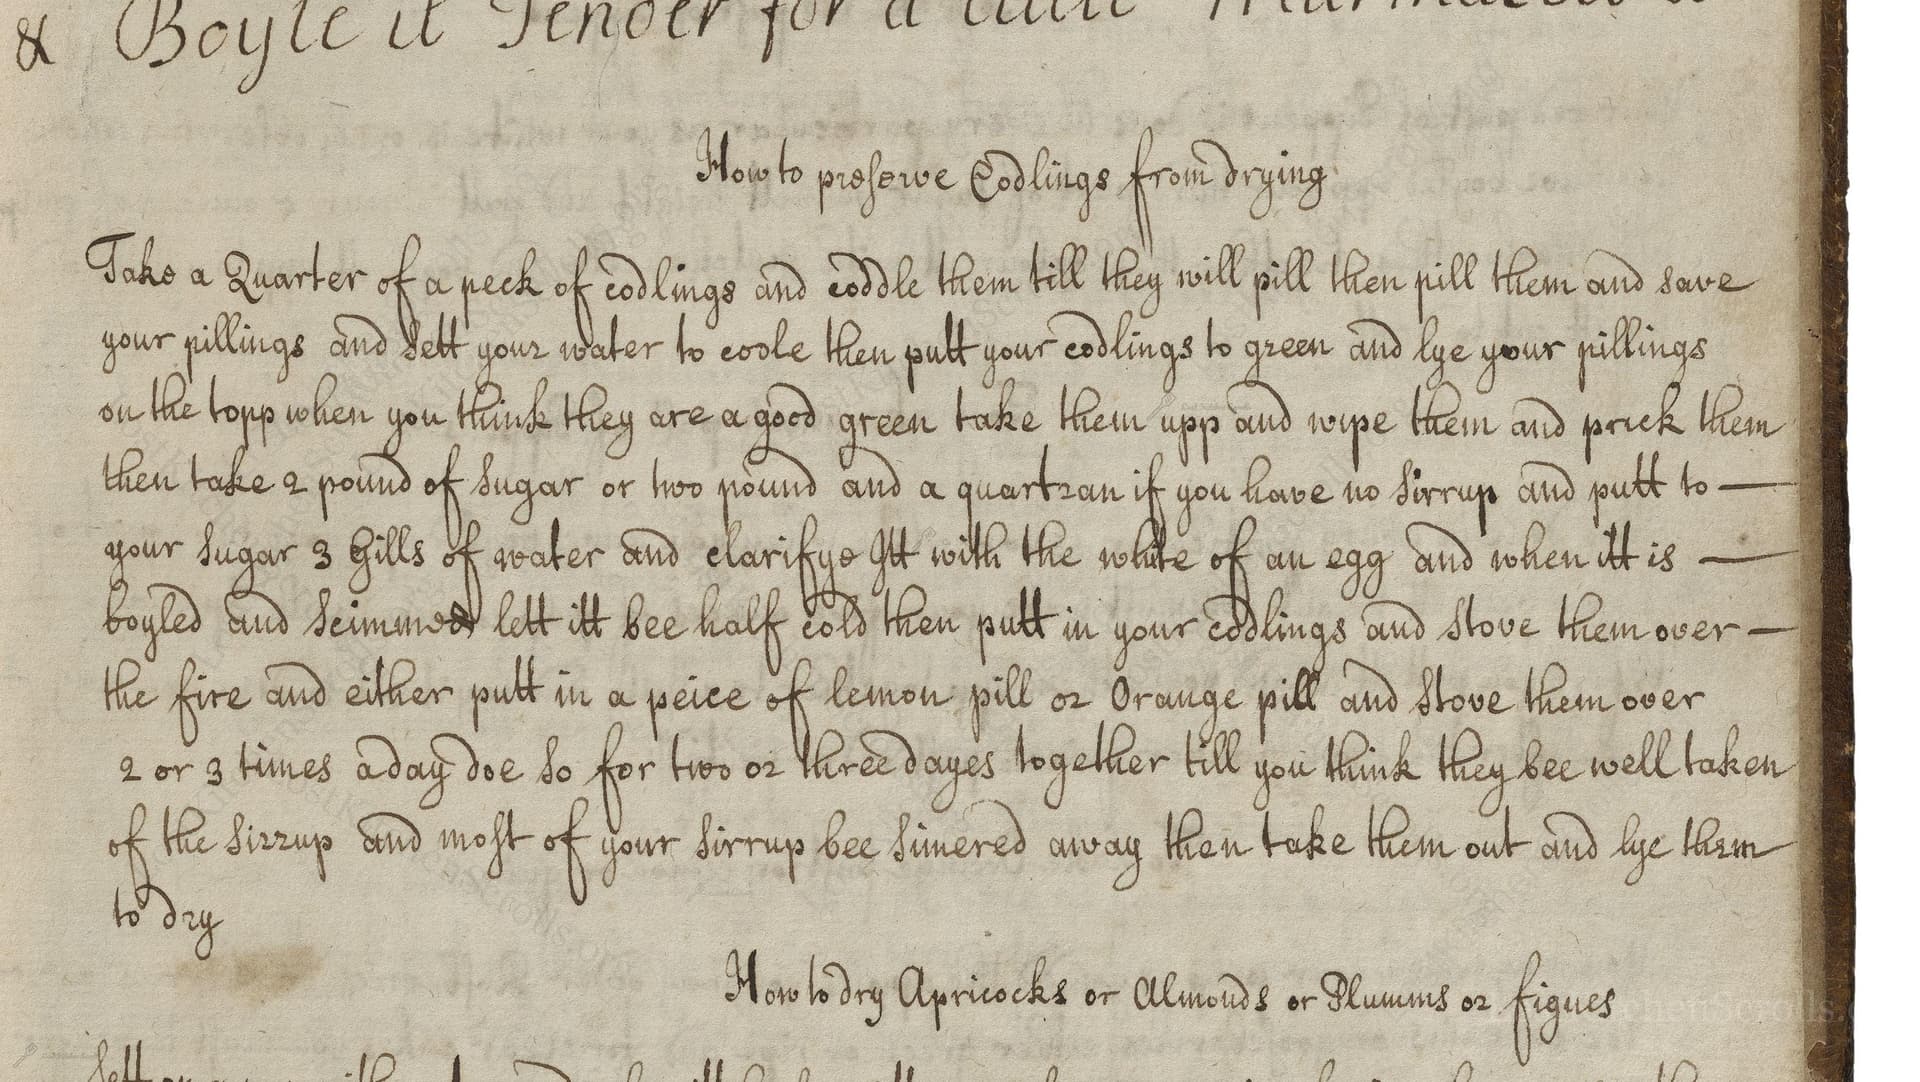 & Boyle it Tender for a
How to preserve Codlings from drying
Take a Quarter of a peck of codlings and coddle them till they will pill then pill them and save
your pillings and sett your water to coole then putt your codlings to green and lye your pillings
on the topp when you think they are a good green take them upp and wipe them and prick them
then take 2 pound of sugar or two pound and a quartran if you have no sirrup and putt to —
your sugar 3 Gills of water and clarifye Itt with the white of an egg and when itt is —
boyled and scimmed lett itt bee half cold then putt in your codlings and stove them over —
the fire and either putt in a peice of lemon pill or Orange pill and stove them over
2 or 3 times a day doe so for two or three dayes together till you think they bee well taken
of the sirrup and most of your sirrup bee simered away then take them out and lye them
to dry
How to dry Apricocks or Almonds or Plumms or figues